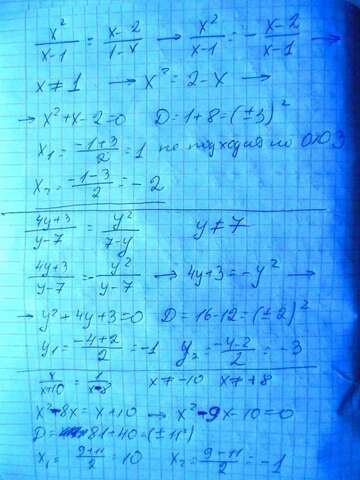 x²/(x-1) = (x-2)/(1-x) → x²/(x-1) = -(x-2)/(x-1) →
x≠1 → x²=2-x →
→ x²+x-2=0 D=1+8=(±3)²
x₁=(-1+3)/2=1 не подходит по ОДЗ
x₂=(-1-3)/2=-2
(4y+3)/(y-7) = y²/(7-y) y≠7
(4y+3)/(y-7) = -y²/(y-7) → 4y+3=-y² →
→ y²+4y+3=0 D=16-12=(±2)²
y₁=(-4+2)/2=-1 y₂=(-4-2)/2=-3
x/(x+10) = 1/(x-8) x≠-10 x≠+8
x²-8x=x+10 → x²-9x-10=0
D=81+40=(±11)²
x₁=(9+11)/2=10 x₂=(9-11)/2=-1